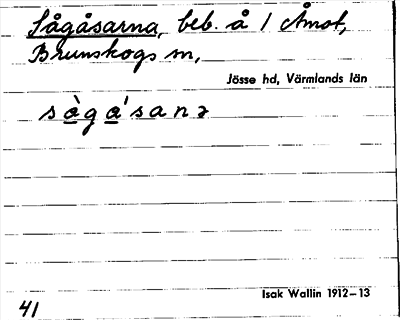 Sågåsarna, beb. å 1 Åmot,
Brunskogs sn,
Jösse hd, Värmlands län
sà̲ga̲'sanɂ
Isak Wallin 1912–13
41